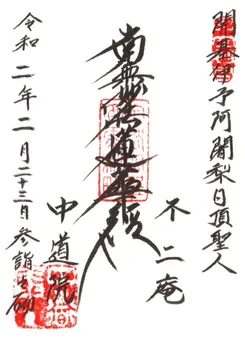 開基律予阿闍梨日頂聖人
不二庵
南無妙法蓮華経
中道院
令和二年二月二十三日参詣之砌